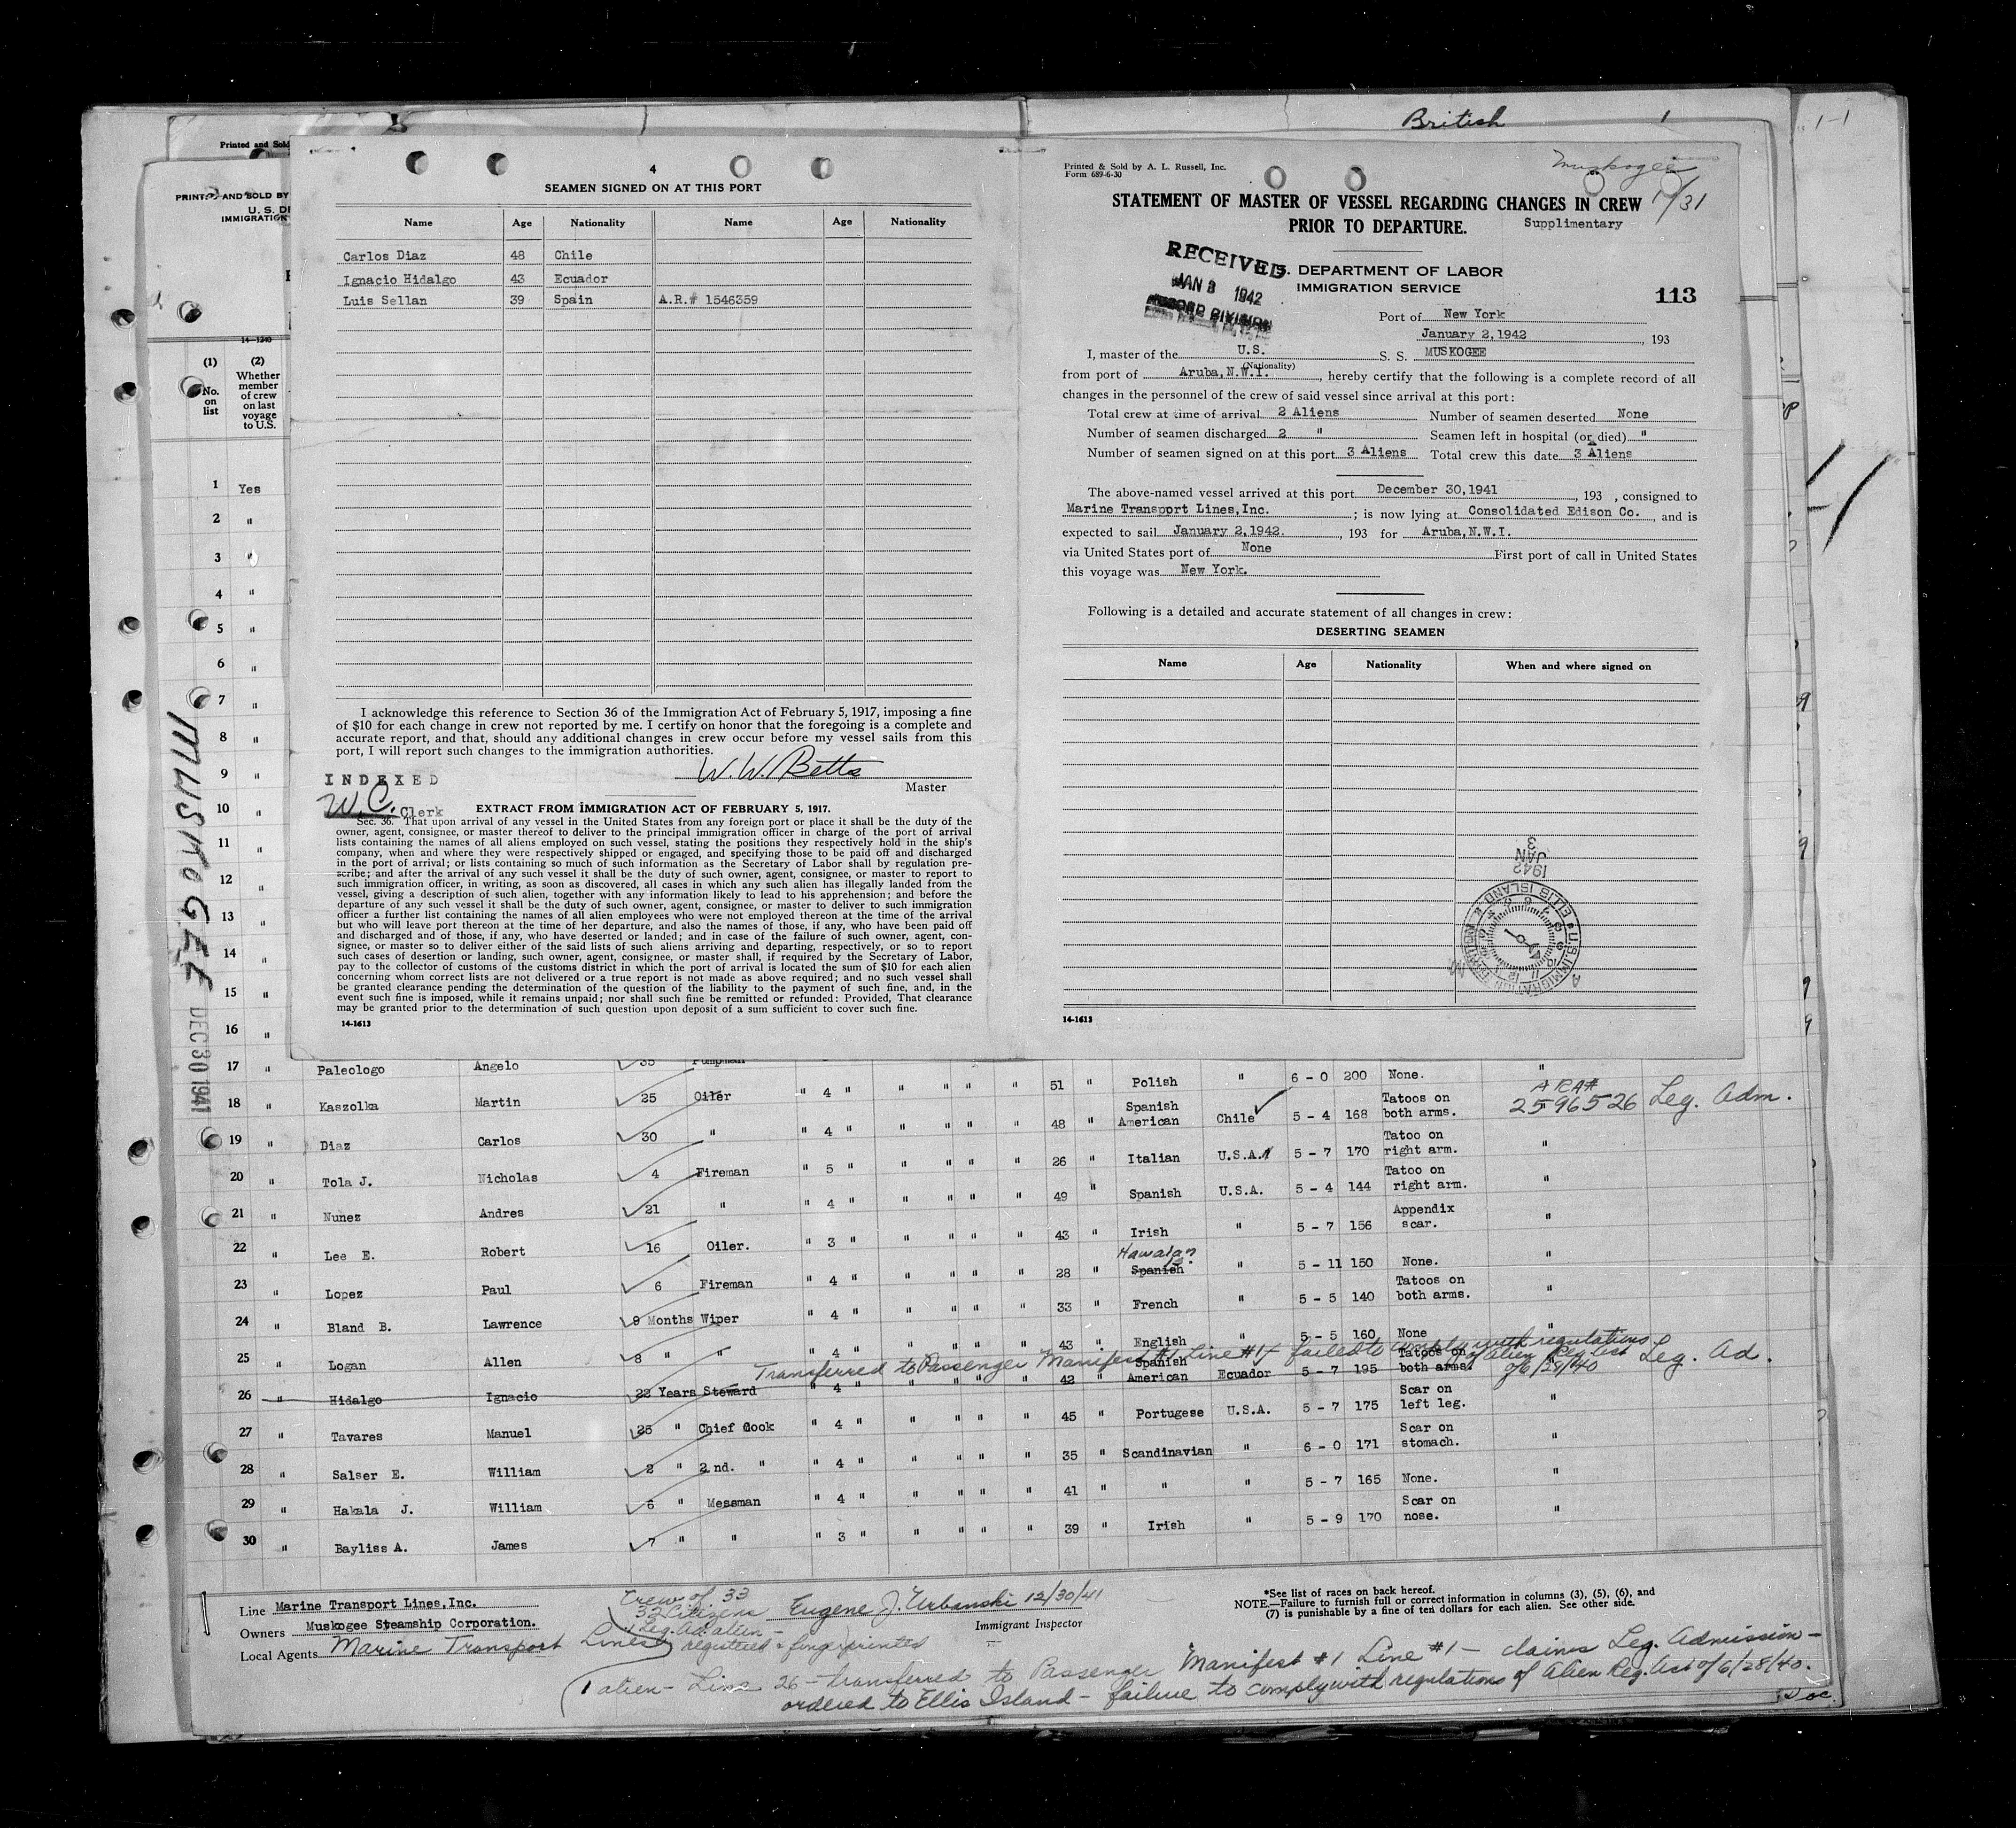 British 1
1-1
Printed and Sold
PRINTED AND SOLD BY
U. S. DE
IMMIGRATION
4
SEAMEN SIGNED ON AT THIS PORT
Name Age Nationality Name Age Nationality
Carlos Diaz 48 Chile
Ignacio Hidalgo 43 Ecuador
Luis Sellan 39 Spain A.R.# 1546359
I acknowledge this reference to Section 36 of the Immigration Act of February 5, 1917, imposing a fine
of $10 for each change in crew not reported by me. I certify on honor that the foregoing is a complete and
accurate report, and that, should any additional changes in crew occur before my vessel sails from this
port, I will report such changes to the immigration authorities.
W. W. Betts
Master
INDEXED
W. C. Clerk
EXTRACT FROM IMMIGRATION ACT OF FEBRUARY 5, 1917.
Sec. 36. That upon arrival of any vessel in the United States from any foreign port or place it shall be the duty of the
owner, agent, consignee, or master thereof to deliver to the principal immigration officer in charge of the port of arrival
lists containing the names of all aliens employed on such vessel, stating the positions they respectively hold in the ship's
company, when and where they were respectively shipped or engaged, and specifying those to be paid off and discharged
in the port of arrival; or lists containing so much of such information as the Secretary of Labor shall by regulation pre-
scribe; and after the arrival of any such vessel it shall be the duty of such owner, agent, consignee, or master to report to
such immigration officer, in writing, as soon as discovered, all cases in which any such alien has illegally landed from the
vessel, giving a description of such alien, together with any information likely to lead to his apprehension; and before the
departure of any such vessel it shall be the duty of such owner, agent, consignee, or master to deliver to such immigration
officer a further list containing the names of all alien employees who were not employed thereon at the time of the arrival
but who will leave port thereon at the time of her departure, and also the names of those, if any, who have been paid off
and discharged and of those, if any, who have deserted or landed; and in case of the failure of such owner, agent, con-
signee, or master so to deliver either of the said lists of such aliens arriving and departing, respectively, or so to report
such cases of desertion or landing, such owner, agent, consignee, or master shall, if required by the Secretary of Labor,
pay to the collector of customs of the customs district in which the port of arrival is located the sum of $10 for each alien
concerning whom correct lists are not delivered or a true report is not made as above required; and no such vessel shall
be granted clearance pending the determination of the question of the liability to the payment of such fine, and, in the
event such fine is imposed, while it remains unpaid; nor shall such fine be remitted or refunded: Provided, That clearance
may be granted prior to the determination of such question upon deposit of a sum sufficient to cover such fine.
14-1613
Printed & Sold by A. L. Russell, Inc.
Form 689-6-30
Muskogee
1/31
STATEMENT OF MASTER OF VESSEL REGARDING CHANGES IN CREW
PRIOR TO DEPARTURE. Supplimentary
RECEIVED
JAN 3 1942
RECORD DIVISION
S. DEPARTMENT OF LABOR
IMMIGRATION SERVICE
113
Port of New York
January 2,1942 , 193
I, master of the U.S. S. S. MUSKOGEE
(Nationality)
from port of Aruba,N.W.I. , hereby certify that the following is a complete record of all
changes in the personnel of the crew of said vessel since arrival at this port:
Total crew at time of arrival 2 Aliens Number of seamen deserted None
Number of seamen discharged 2 " Seamen left in hospital (or died) "
Number of seamen signed on at this port 3 Aliens Total crew this date 3 Aliens
The above-named vessel arrived at this port December 30,1941 , 193 , consigned to
Marine Transport Lines,Inc. ; is now lying at Consolidated Edison Co. , and is
expected to sail January 2,1942. , 193 for Aruba,N.W.I.
via United States port of None First port of call in United States
this voyage was New York.
Following is a detailed and accurate statement of all changes in crew:
DESERTING SEAMEN
Name Age Nationality When and where signed on
1942
JAN
3
U.S. IMMIGRATION ELLIS ISLAND
14-1613
14-1240
(1) (2)
No. on list
Whether member of crew on last voyage to U.S.
1 Yes
2 "
3 "
4 "
5 "
6 "
7 "
8 "
9 "
10 "
11 "
12 "
13 "
14 "
15 "
16 "
MUSKOGEE DEC 30 1941
17 " Paleologo Angelo 35 Pumpman
18 " Kaszolka Martin 25 Oiler " 4 " " " " " 51 " Polish " 6 - 0 200 None. "
19 " Diaz Carlos 30 " " 4 " " " " " 48 " Spanish American Chile 5 - 4 168 Tatoos on both arms. ARA# 2596526 Leg. Adm.
20 " Tola J. Nicholas 4 Fireman " 5 " " " " " 26 " Italian U.S.A. 5 - 7 170 Tatoo on right arm. "
21 " Nunez Andres 21 " " 4 " " " " " 49 " Spanish U.S.A. 5 - 4 144 Tatoo on right arm. "
22 " Lee E. Robert 16 Oiler. " 3 " " " " " 43 " Irish " 5 - 7 156 Appendix scar. "
23 " Lopez Paul 6 Fireman " 4 " " " " " 28 " Hawaian Spanish " 5 - 11 150 None. "
24 " Bland B. Lawrence 9 Months Wiper " 4 " " " " " 33 " French " 5 - 5 140 Tatoos on both arms. "
25 " Logan Allen 8 " " " 4 " " " " " 43 " English " 5 - 5 160 None "
Transferred to Passenger Manifest #1 Line #1 - failed to comply with regulations of Alien Reg. Act of 6/28/40 Leg. Ad.
26 Hidalgo Ignacio 22 Years Steward " 4 " " " " " 42 " Spanish American Ecuador 5 - 7 195 Tatoos on both arms. "
27 " Tavares Manuel 25 " Chief Cook " 4 " " " " " 45 " Portugese U.S.A. 5 - 7 175 Scar on left leg. "
28 " Salser E. William 2 " 2nd. " " 4 " " " " " 35 " Scandinavian " 6 - 0 171 Scar on stomach. "
29 " Hakala J. William 6 " Messman " 4 " " " " " 41 " " " 5 - 7 165 None. "
30 " Bayliss A. James 7 " " " 3 " " " " " 39 " Irish " 5 - 9 170 Scar on nose. "
Line Marine Transport Lines,Inc.
Owners Muskogee Steamship Corporation.
Local Agents Marine Transport Lines
Crew of 33
32 Citizens
1 Leg. Ad. alien -
registered & fingerprinted
Eugene J. Urbanski 12/30/41
Immigrant Inspector
*See list of races on back hereof.
NOTE.—Failure to furnish full or correct information in columns (3), (5), (6), and
(7) is punishable by a fine of ten dollars for each alien. See other side.
1 alien - Line 26 - transferred to Passenger Manifest #1 Line #1 - claims Leg. Admission -
ordered to Ellis Island - failure to comply with regulations of Alien Reg. Act of 6/28/40.